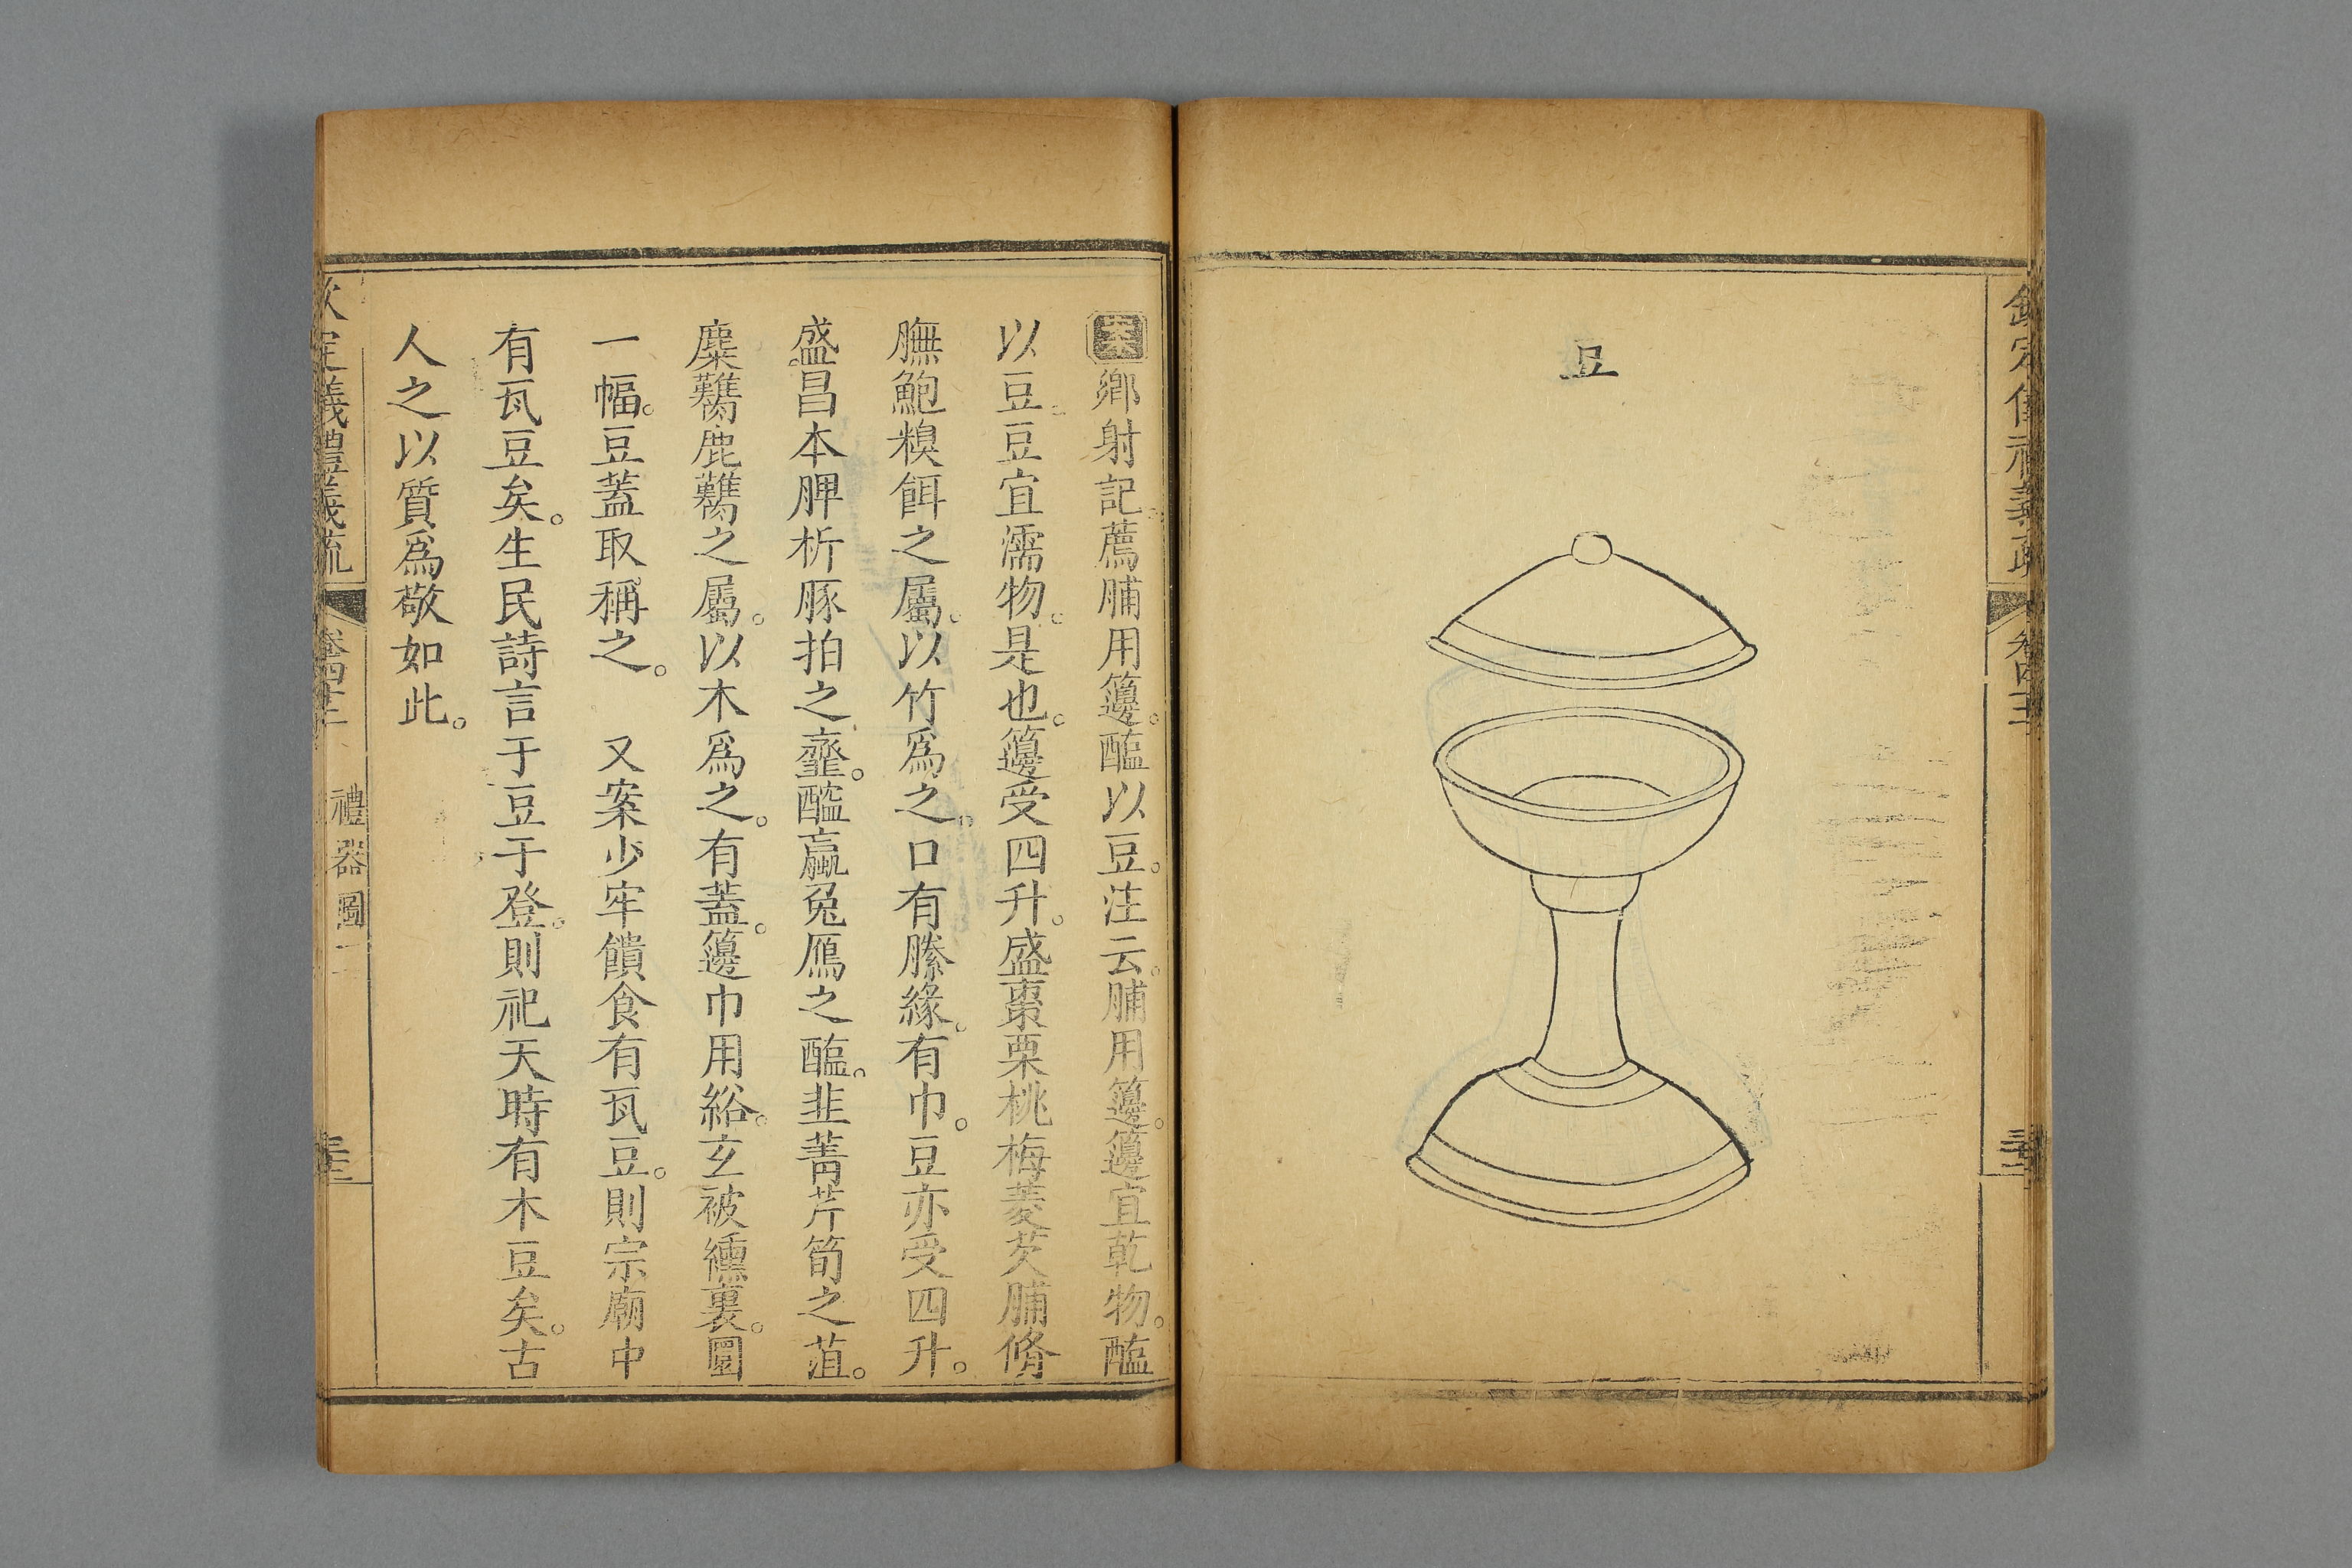 豆
案鄉射記薦脯用籩。醢以豆。注云。脯用籩。籩宜乾物。醢
以豆。豆宜濡物。是也。籩受四升。盛棗栗桃梅菱芡脯脩
膴鮑糗餌之屬。以竹爲之。口有縢緣。有巾。豆亦受四升。
盛。昌本脾析豚拍之齏。醓蠃兔鴈之醢。韭菁芹筍之菹。
麋臡鹿臡之屬。以木爲之。有蓋。籩巾用綌。玄被纁裏。圜
一幅。豆蓋取稱之。 又案少牢饋食有瓦豆。則宗廟中
有瓦豆矣。生民詩言于豆于登。則祀天時有木豆矣。古
人之以質爲敬如此。
欽定儀禮義疏 卷四十二 禮器圖